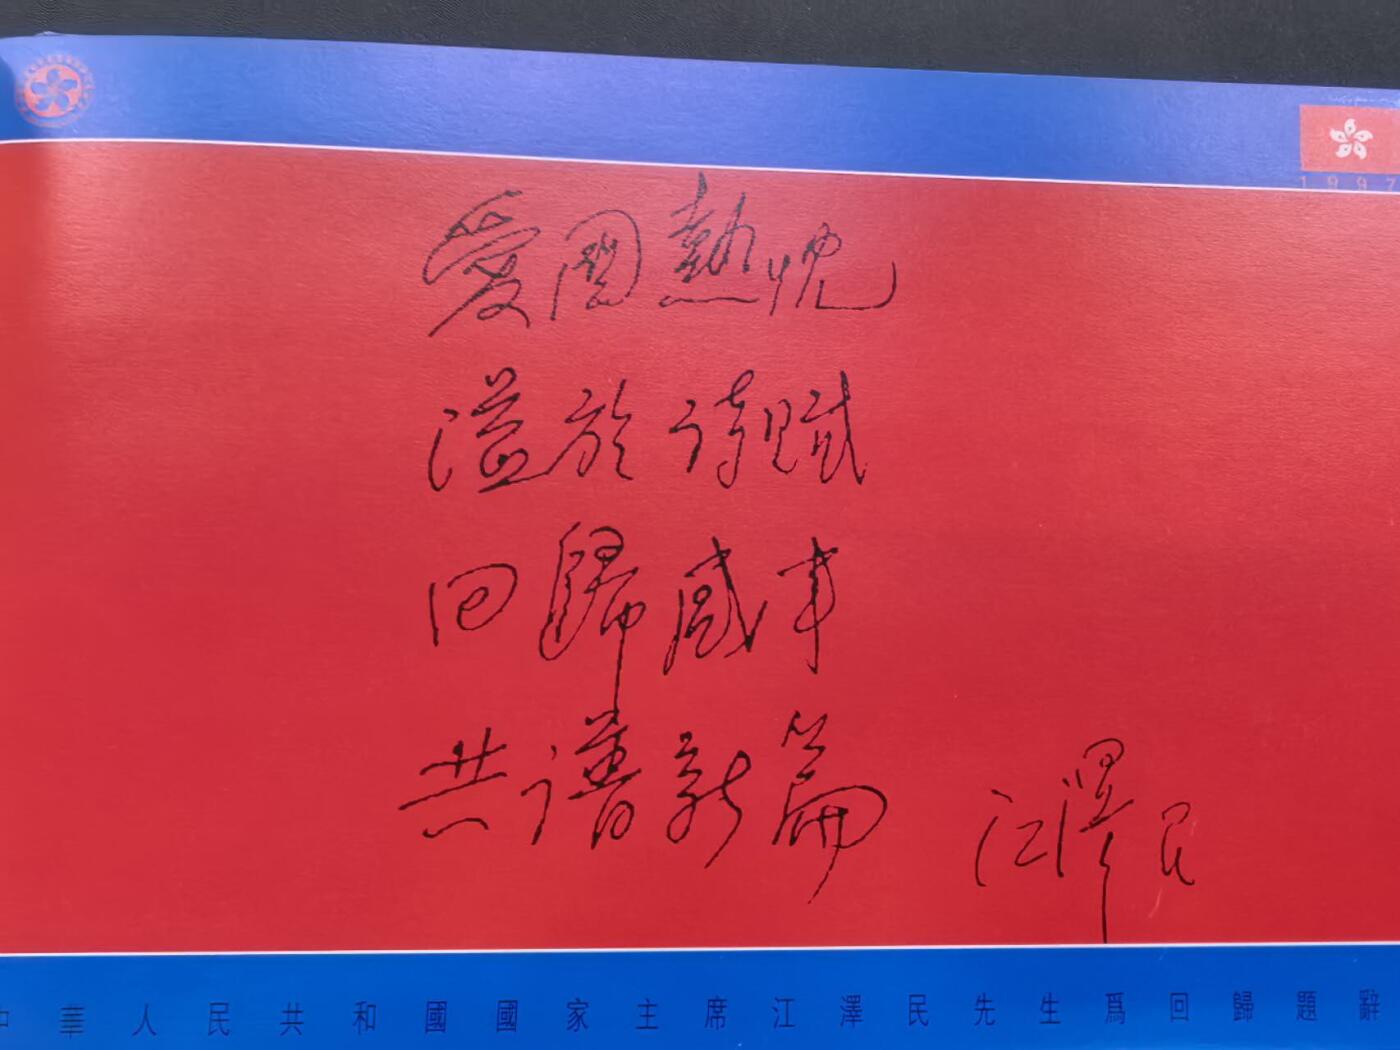 1997
愛國熱忱
溢於詩賦
回歸盛事
共譜新篇
江澤民
中華人民共和國國家主席江澤民先生爲回歸題辭